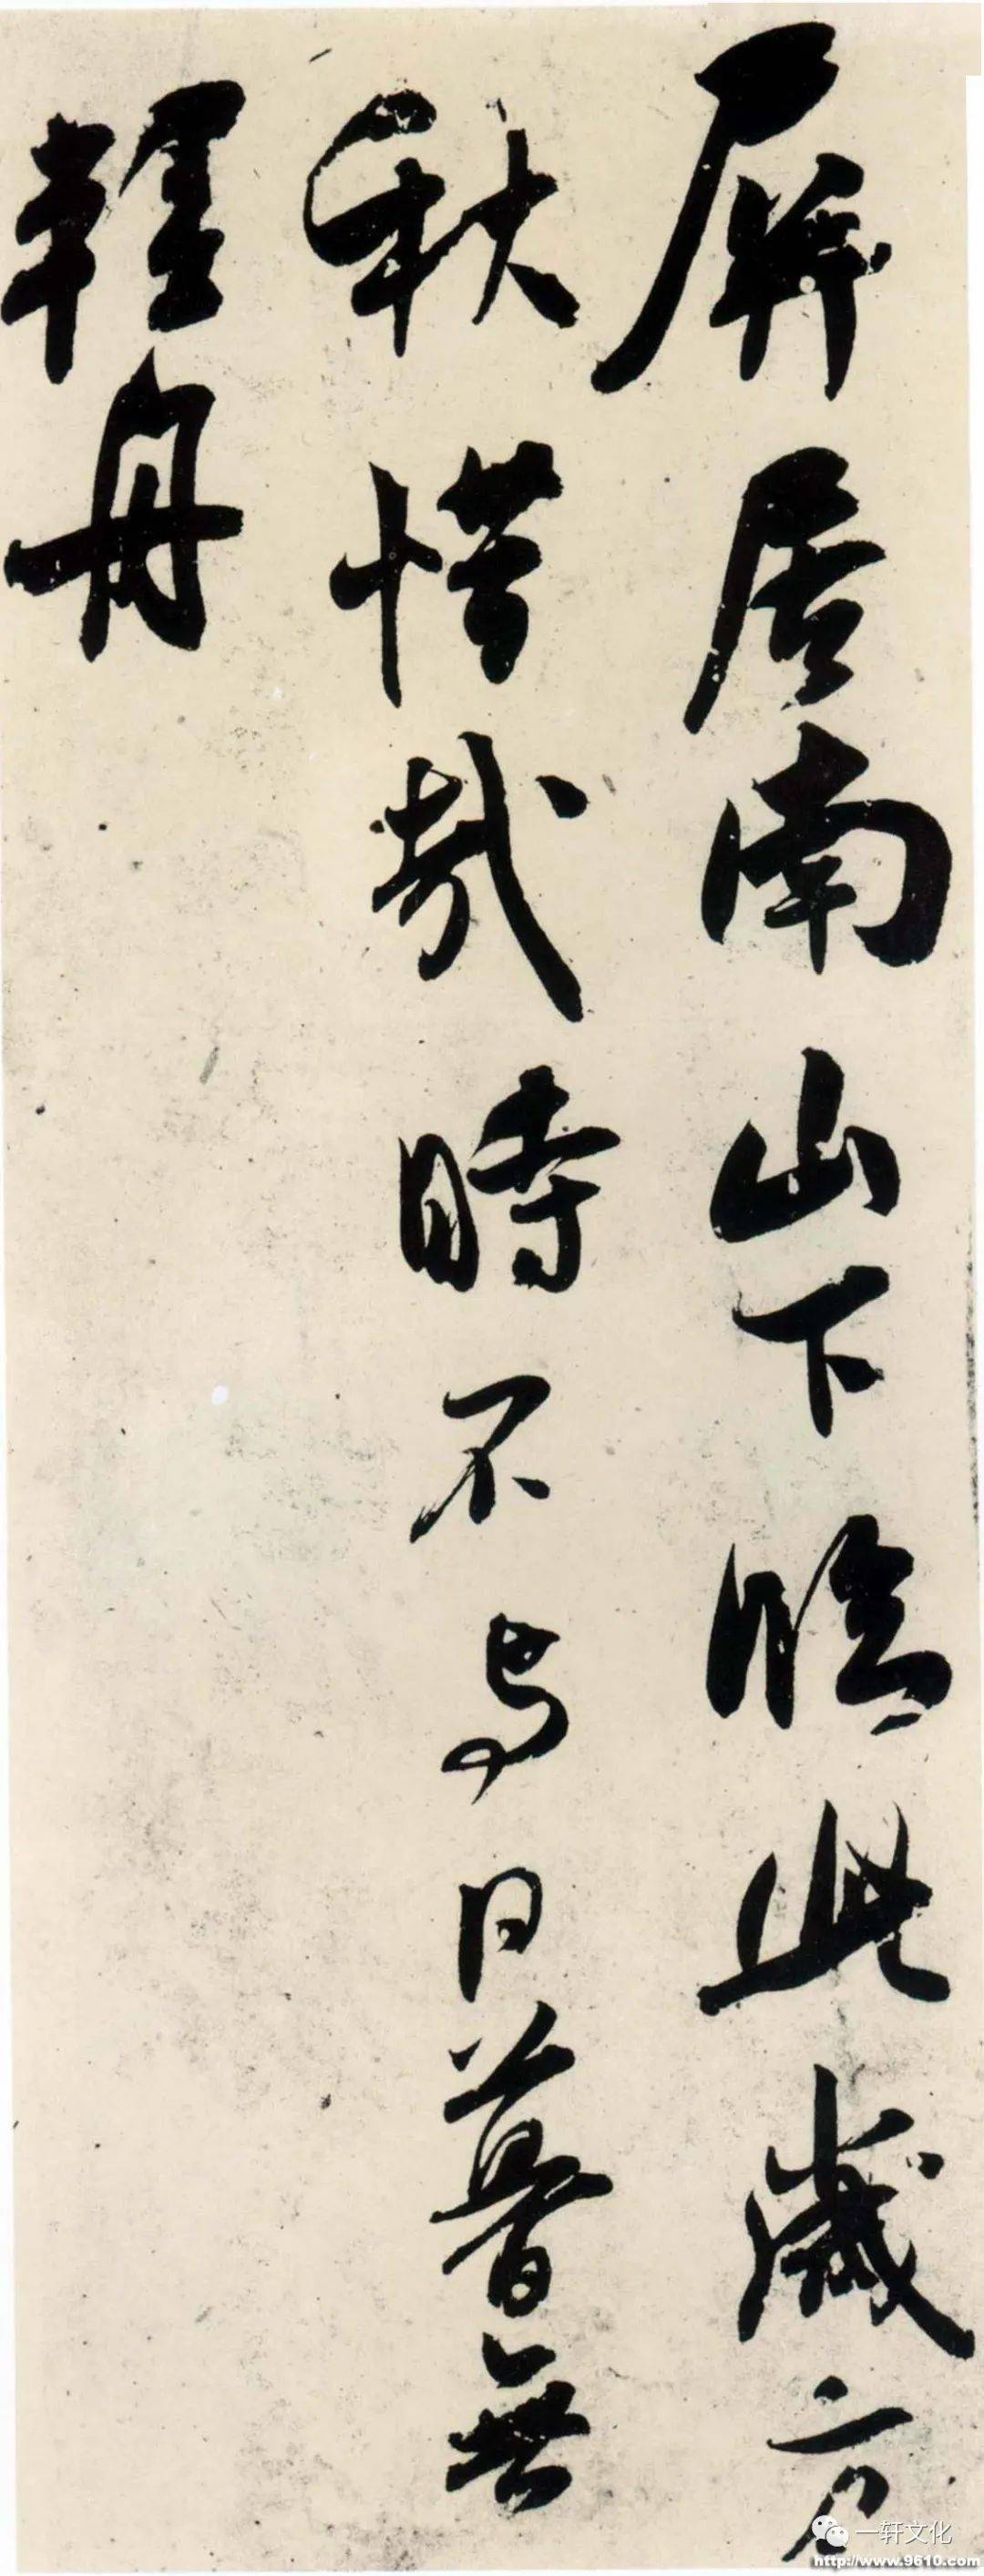 屏居南山下臨此歲方
秋惜哉時不与日暮無
輕舟
一轩文化
http://www.9610.com